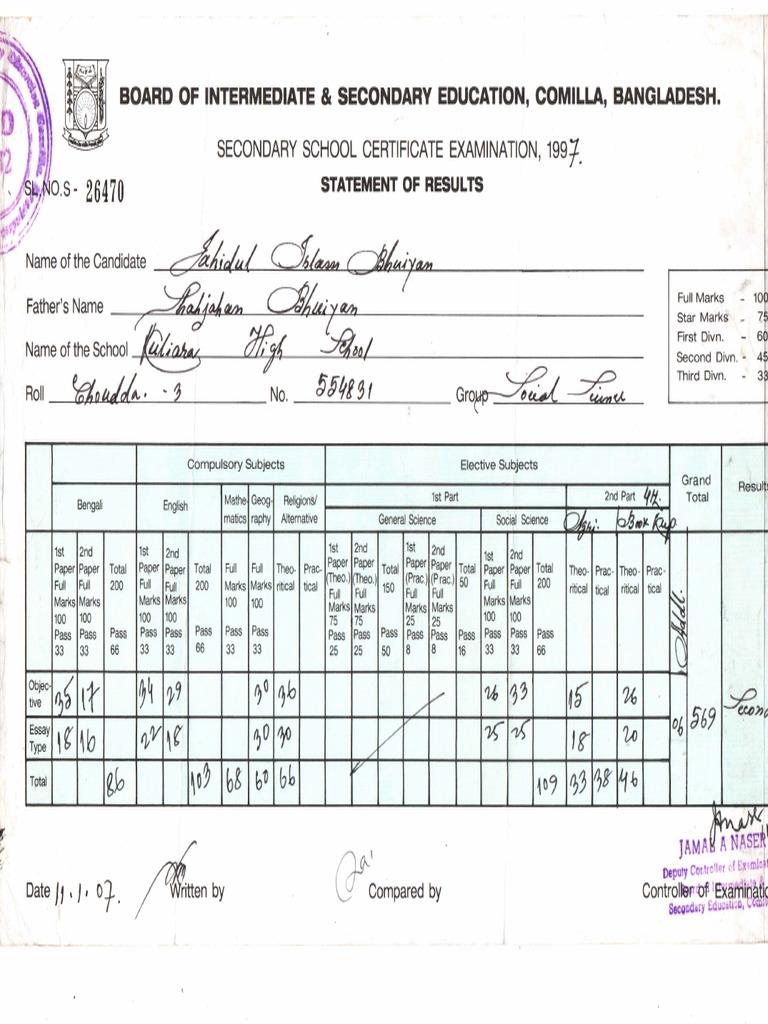 BOARD OF INTERMEDIATE & SECONDARY EDUCATION, COMILLA, BANGLADESH.
SECONDARY SCHOOL CERTIFICATE EXAMINATION, 1997.
STATEMENT OF RESULTS
SL.NO.S - 26470
Name of the Candidate Jahidul Islam Bhuiyan
Father's Name Shahjahan Bhuiyan
Name of the School Kuliara High School
Roll Choudda. - 3 No. 554831 Group Social Science
Full Marks - 100
Star Marks - 75
First Divn. - 60
Second Divn. - 45
Third Divn. - 33
Compulsory Subjects Elective Subjects Grand Total Results
Bengali English Mathematics Geography Religions/Alternative 1st Part 2nd Part
General Science Social Science
1st Paper Full Marks 100 Pass 33
2nd Paper Full Marks 100 Pass 33
Total 200 Pass 66
1st Paper Full Marks 100 Pass 33
2nd Paper Full Marks 100 Pass 33
Total 200 Pass 66
Full Marks 100 33
Full Marks 100 33
Theoritical
Practical
1st Paper (Theo.) Full Marks 75 Pass 25
2nd Paper (Theo.) Full Marks 75 Pass 25
Total 150 Pass 50
1st Paper (Prac.) Full Marks 25 Pass 8
2nd Paper (Prac.) Full Marks 25 Pass 8
Total 50 Pass 16
1st Paper Full Marks 100 Pass 33
2nd Paper Full Marks 100 Pass 33
Total 200 Pass 66
Theoritical
Practical
Theoritical
Practical
Addl.
Objective 35 17 34 29 30 36 26 33 15 26
Essay Type 18 16 22 18 30 30 25 25 18 20
06 569 Second
Total 86 103 68 60 66 109 33 38 46
JAMAL A NASER
Deputy Controller of
Secondary Education,
Date 11.1.07. Written by Compared by Controller of Examinatio